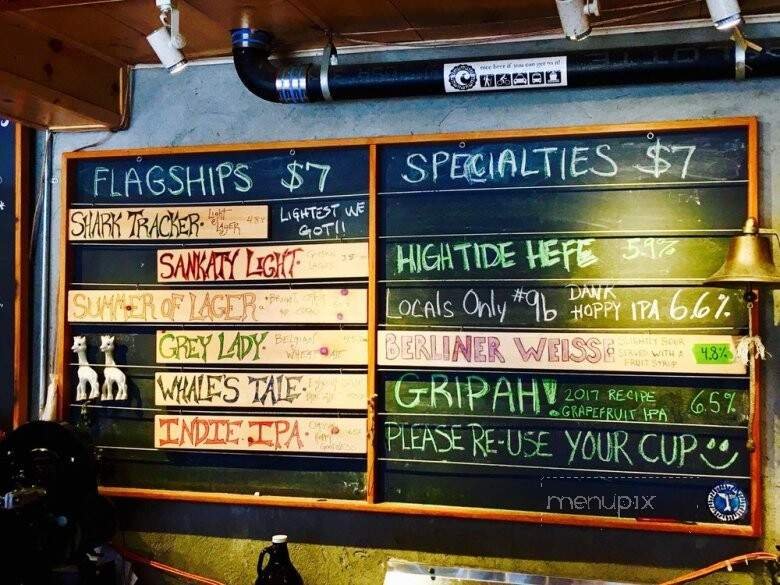 nice beer if you can get to it!
FLAGSHIPS $7
SHARK TRACKER. Light LAGER 4.8%
LIGHTEST WE
GOT!!
SANKATY LIGHT.
SUMMER OF LAGER.
GREY LADY. BELGIAN
WHEAT ALE
WHALE'S TALE.
INDIE IPA.
SPECIALTIES $7
HIGH TIDE HEFE 5.9%
LOCALS ONLY #9b DANK
HOPPY IPA 6.6%
BERLINER WEISSE SLIGHTLY SOUR
SERVED WITH A
FRUIT SYRUP
4.8%
GRIPAH! 2017 RECIPE
GRAPEFRUIT IPA 6.5%
PLEASE RE-USE YOUR CUP
menupix